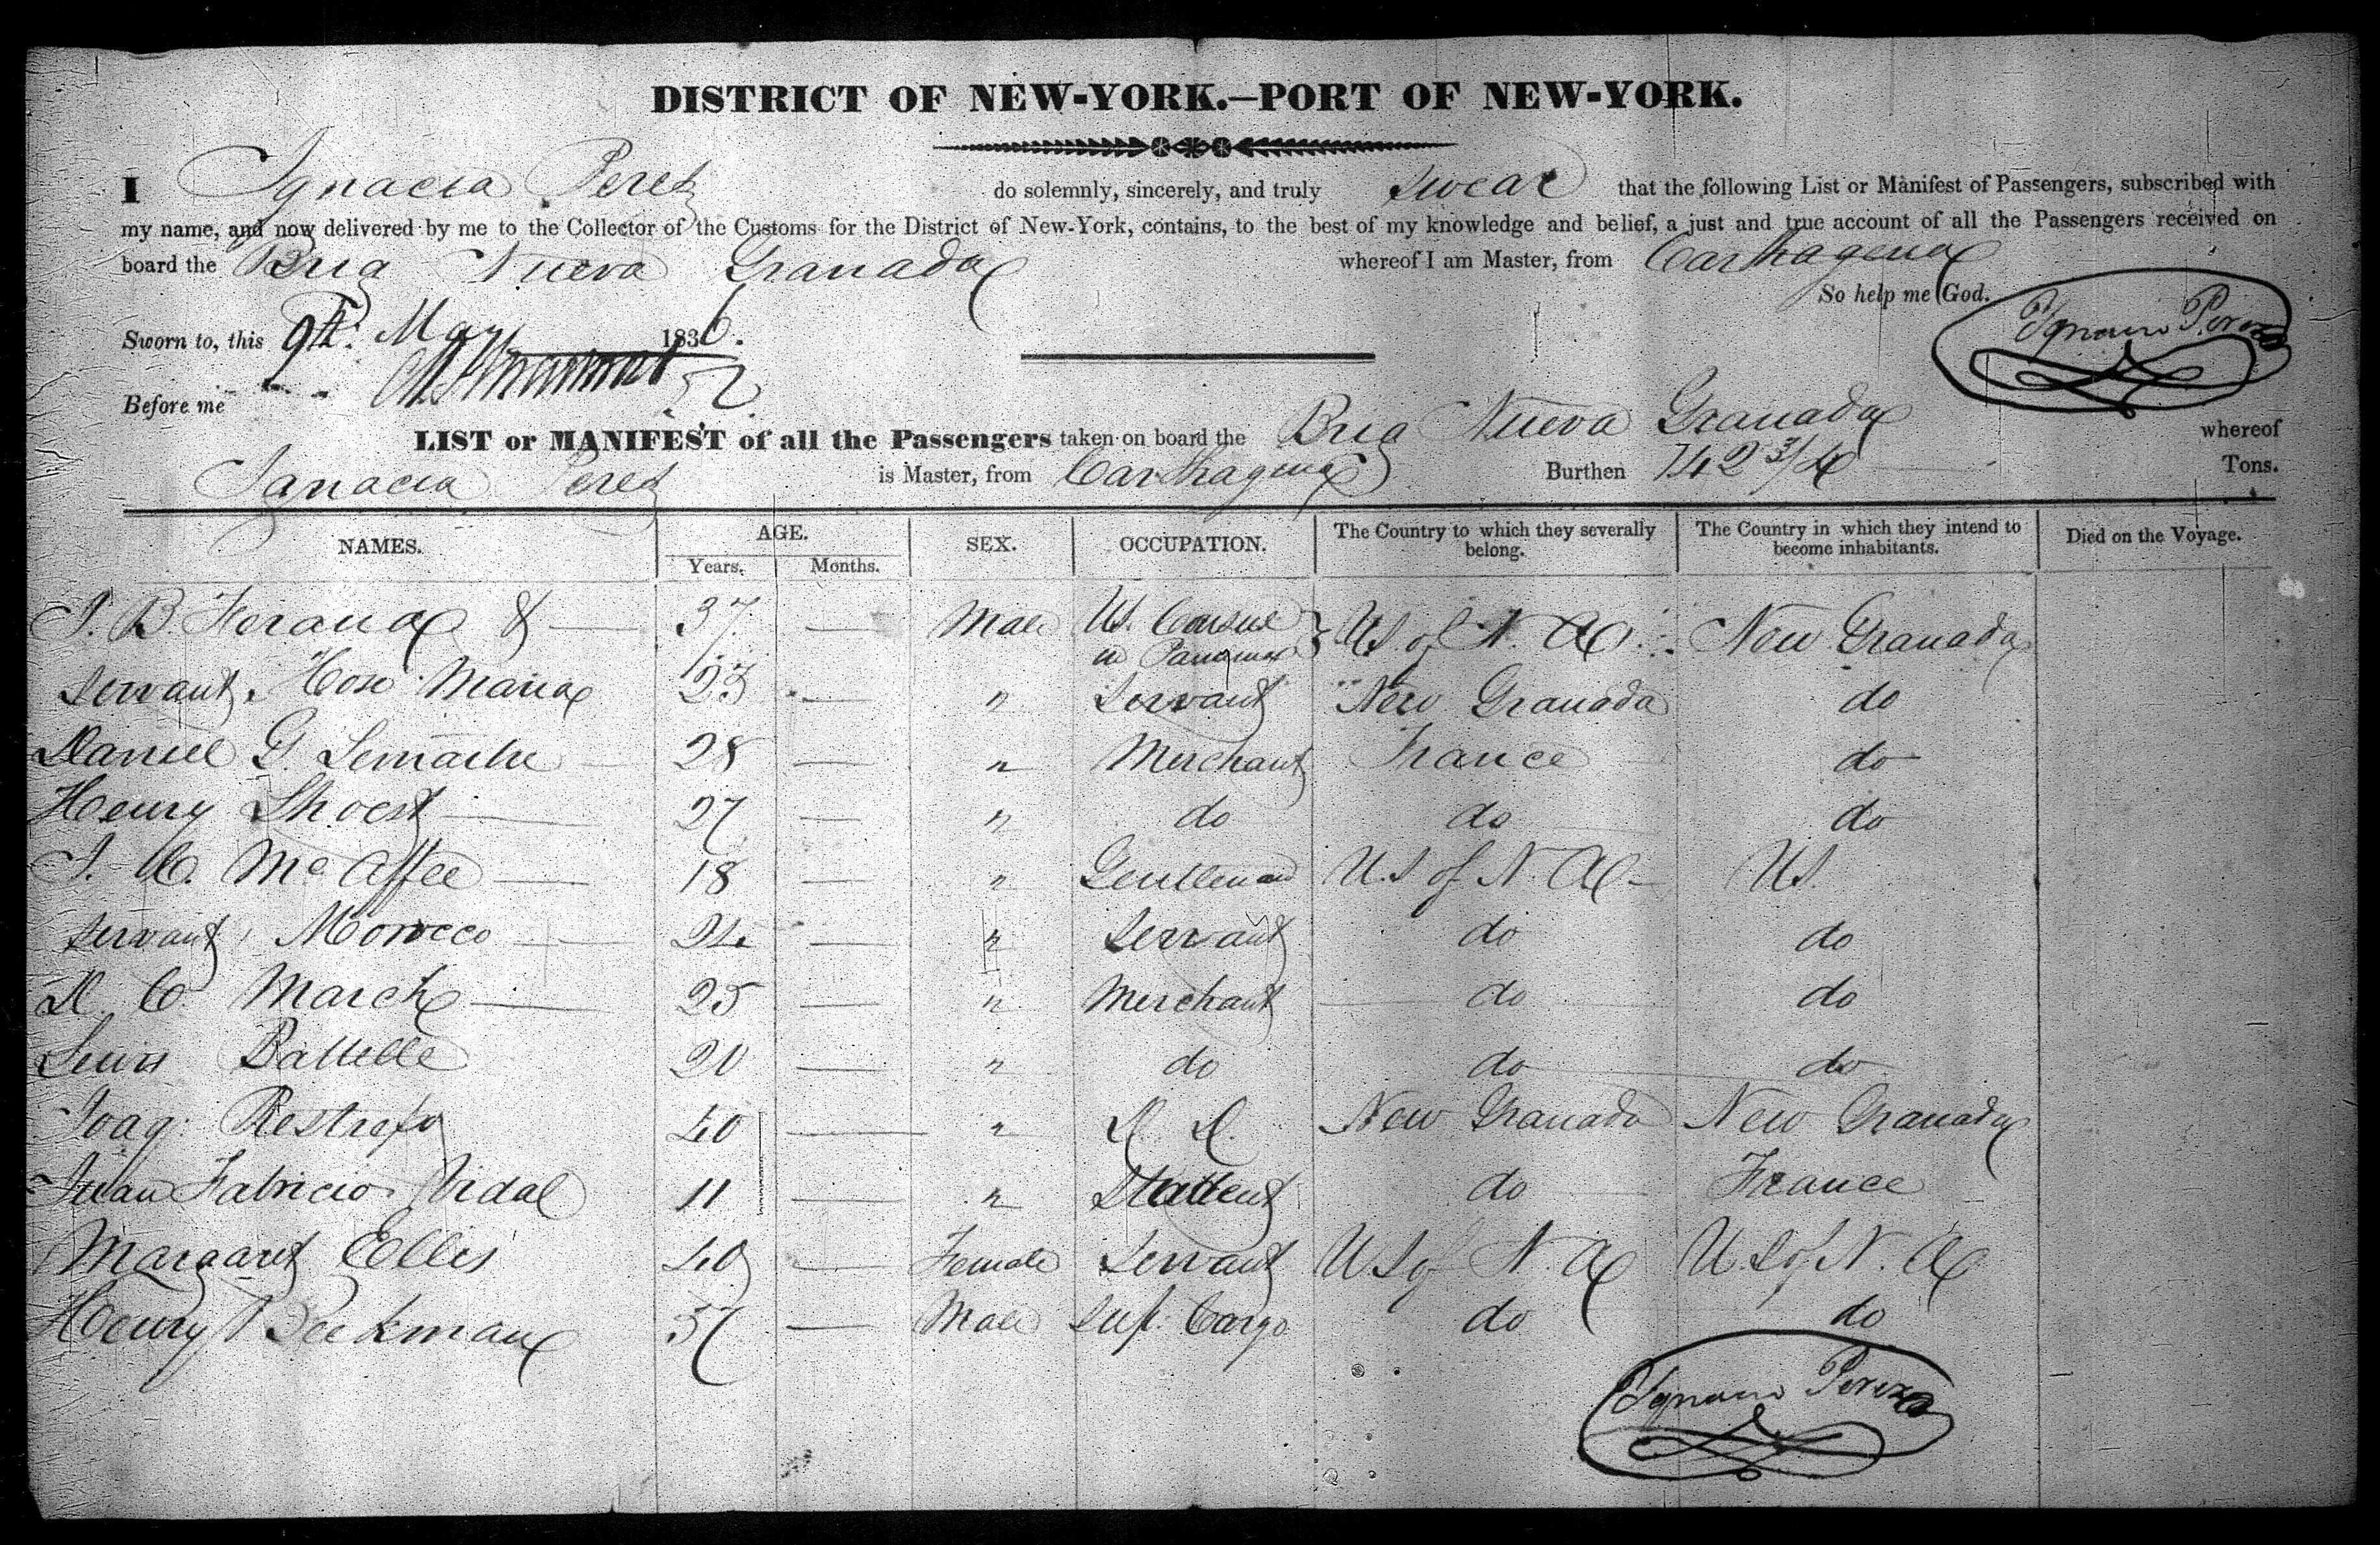 DISTRICT OF NEW-YORK.—PORT OF NEW-YORK.
I Ignacia Perez do solemnly, sincerely, and truly swear that the following List or Manifest of Passengers, subscribed with
my name, and now delivered by me to the Collector of the Customs for the District of New-York, contains, to the best of my knowledge and belief, a just and true account of all the Passengers received on
board the Brig Nueva Granada whereof I am Master, from Carthagena
So help me God.
Sworn to, this 9th May 1836.
Ignacio Perez
Before me
LIST or MANIFEST of all the Passengers taken on board the Brig Nueva Granada whereof
Ignacia Perez is Master, from Carthagena Burthen 142 3/4 Tons.
NAMES. AGE. Years. Months. SEX. OCCUPATION. The Country to which they severally belong. The Country in which they intend to become inhabitants. Died on the Voyage.
J. B. Feraua & — 37 — Male US. Consul in Panama U.S. of N. A. New Granada
servant, Hose Maria 23 — " Servant New Granada do
Daniel G. Lemaitre 28 — " Merchant France do
Henry Shoest 27 — " do do do
J. C. McAffee 18 — " Gentleman U.S of N. A US.
servant, Morocco 24 — " Servant do do
D. C. March 25 — " Merchant do do
Lewis Battelle 20 — " do do do
Joaq. Restrepo 40 — " D. D. New Granada New Granada
Juan Fabricio Vidal 11 — " Student do France
Margaret Ellis 40 — Female Servant U.S of N. A U.S of N. A
Henry Beekman 37 — Male Sup. Cargo do do
Ignacio Perez